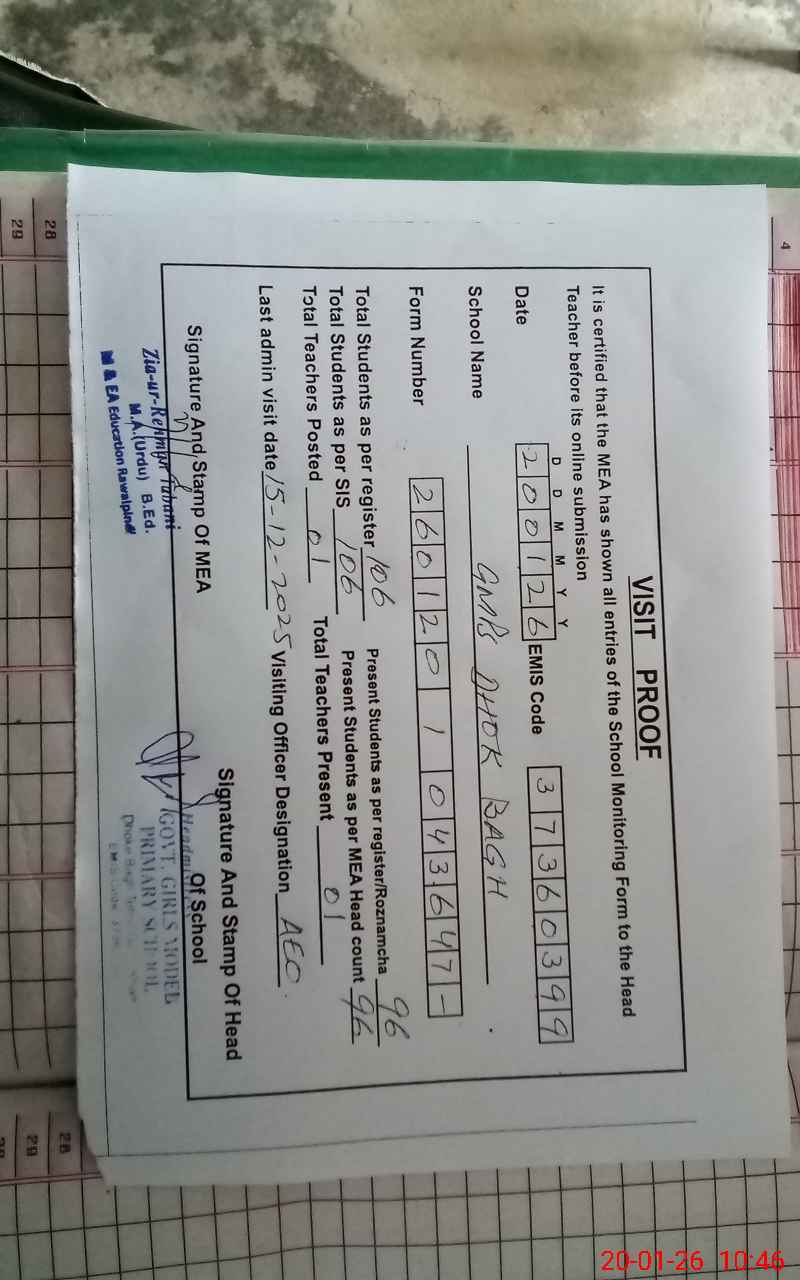 VISIT PROOF
It is certified that the MEA has shown all entries of the School Monitoring Form to the Head
Teacher before its online submission
D D M M Y Y
Date 200126 EMIS Code 37360399
School Name GMPS DHOK BAGH
Form Number 260120104364 7-
Total Students as per register 106 Present Students as per register/Roznamcha 96
Total Students as per SIS 106 Present Students as per MEA Head count 96
Total Teachers Posted 01 Total Teachers Present 01
Last admin visit date 15-12-2025 Visiting Officer Designation AEO.
Signature And Stamp Of MEA
Signature And Stamp Of Head
Of School
Zia-ur-Rehman
M.A.(Urdu) B.Ed.
M & EA Education Rawalpindi
GOVT. GIRLS MODEL
PRIMARY SCHOOL
4
28
29
28
29
20-01-26 10:46